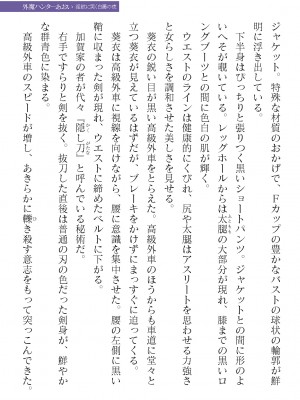 外魔ハンターあおい
ジャケット。特殊な材質のおかげで、Fカップの豊かなバストの球状の輪郭が鮮
明に浮き出している。
下半身はぴっちりと張りつく黒いショートパンツ。ジャケットとの間に形のよ
いへそが覗いている。レッグホールからは太腿の大部分が現れ、膝までの黒いロ
ングブーツとの間に色白の肌が輝く。
ウエストのラインは健康的にくびれ、尻や太腿はアスリートを思わせる力強さ
と女らしさを調和させた美しさを見せる。
葵衣の鋭い目が黒い高級外車をとらえた。高級外車のほうからも車道に堂々と
立つ葵衣が見えているはずだが、ブレーキをかけずにまっすぐに迫ってくる。
葵衣は高級外車に視線を向けながら、腰に意識を集中させた。腰の左側に黒い
鞘に収まった剣が現れ、ウエストに締めたベルトに下がる。
加賀家の者が代々『隠し刀』と呼んでいる秘術だ。
右手ですらりと剣を抜く。抜刀した直後は普通の刃の色だった剣身が、鮮やか
な群青色に染まる。
高級外車のスピードが増し、あきらかに轢き殺す意志をもって突っこんできた。